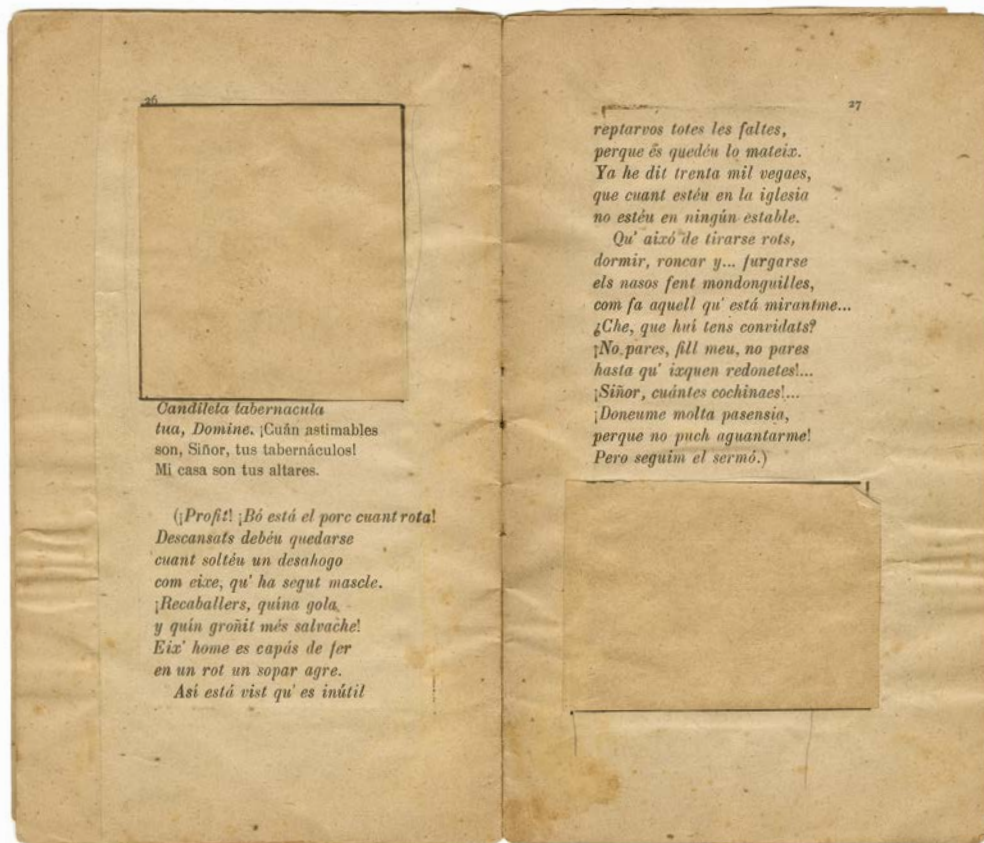 26
Candileta tabernacula
tua, Domine. ¡Cuán astimables
son, Siñor, tus tabernáculos!
Mi casa son tus altares.
(¡Profit! ¡Bó está el porc cuant rota!
Descansats debéu quedarse
cuant soltéu un desahogo
com eixe, qu' ha segut mascle.
¡Recaballers, quína gola,
y quín groñit més salvache!
Eix' home es capás de fer
en un rot un sopar agre.
Así está vist qu' es inútil
27
reptarvos totes les faltes,
perque és quedéu lo mateix.
Ya he dit trenta mil vegaes,
que cuant estéu en la iglesia
no estéu en ningún estable.
Qu' aixó de tirarse rots,
dormir, roncar y... furgarse
els nasos fent mondonguilles,
com fa aquell qu' está mirantme...
¿Che, que huí tens convidats?
¡No pares, fill meu, no pares
hasta qu' ixquen redonetes!...
¡Siñor, cuántes cochinaes!...
¡Doneume molta pasensia,
perque no puch aguantarme!
Pero seguim el sermó.)